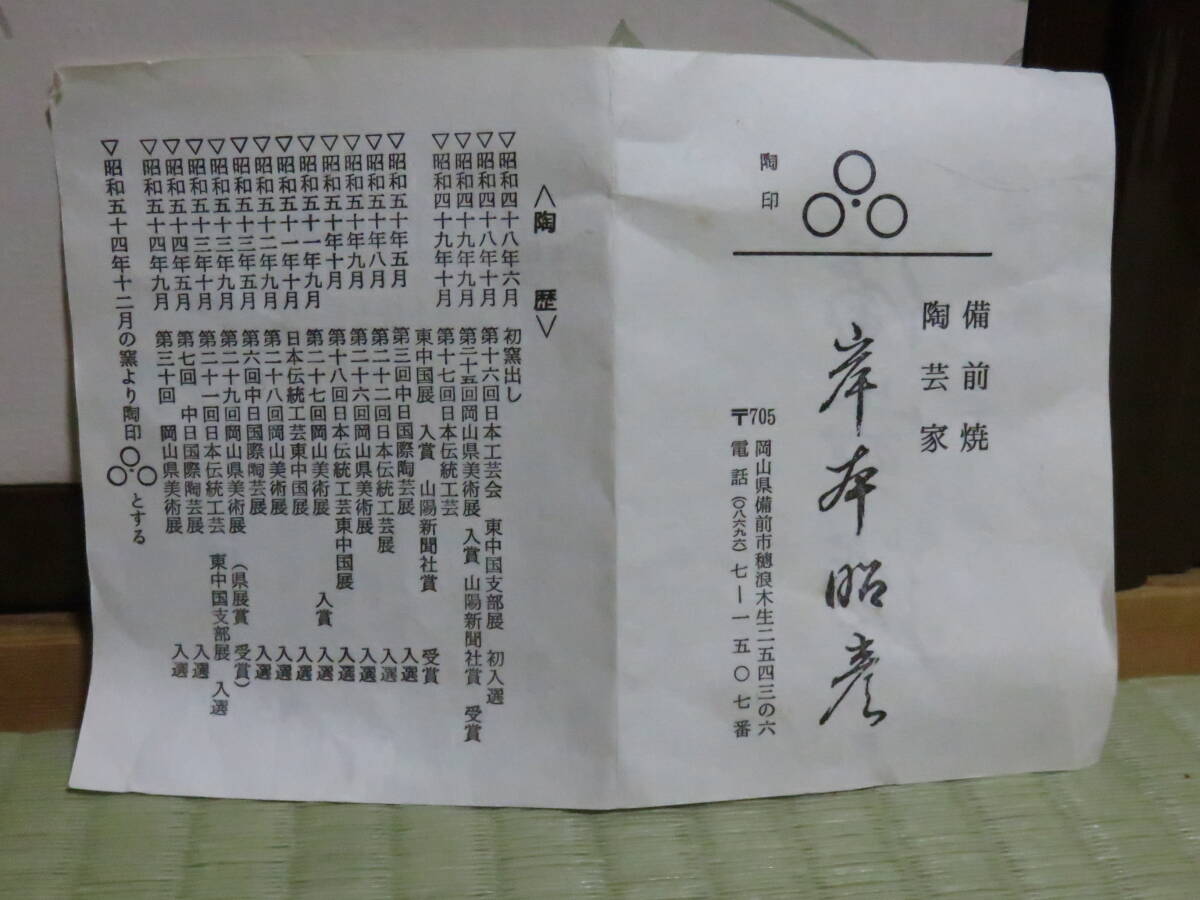 陶印
備前焼
陶芸家
岸本昭彦
〒705 岡山県備前市穂浪木生二五四三の六
電話(〇八六九六)七―一五〇七番
<陶 歴>
▽昭和四十八年六月 初窯出し
▽昭和四十八年十月 第十六回日本工芸会 東中国支部展 初入選
▽昭和四十九年九月 第二十五回岡山県美術展 入賞 山陽新聞社賞 受賞
▽昭和四十九年十月 第十七回日本伝統工芸
東中国展 入賞 山陽新聞社賞 受賞
▽昭和五十年五月 第三回中日国際陶芸展 入選
▽昭和五十年八月 第二十二回日本伝統工芸展 入選
▽昭和五十年九月 第二十六回岡山県美術展 入選
▽昭和五十年十月 第十八回日本伝統工芸東中国展 入選
▽昭和五十一年九月 第二十七回岡山美術展 入賞 入選
▽昭和五十一年十月 日本伝統工芸東中国展 入選
▽昭和五十二年九月 第二十八回岡山美術展 入選
▽昭和五十三年五月 第六回中日国際陶芸展 入選
▽昭和五十三年九月 第二十九回岡山県美術展 (県展賞 受賞)
▽昭和五十三年十月 第二十一回日本伝統工芸 東中国支部展 入選
▽昭和五十四年五月 第七回 中日国際陶芸展 入選
▽昭和五十四年九月 第三十回 岡山県美術展 入選
▽昭和五十四年十二月の窯より陶印 とする